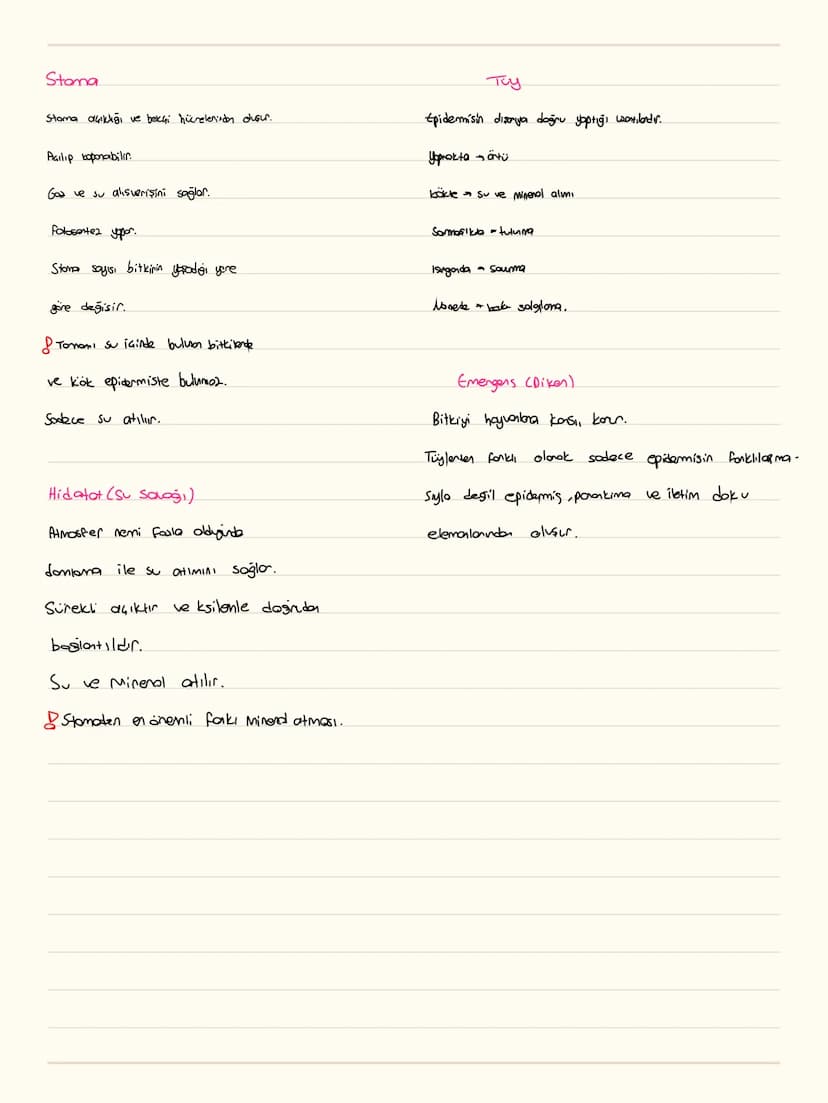 Stoma
Stoma açıklığı ve bekçi hücrelerinden oluşur.
Açılıp kapanabilir.
Gaz ve su alışverişini sağlar.
Fotosentez yapar.
Stoma sayısı bitkinin yaşadığı yere
göre değişir.
Tamamı su içinde bulunan bitkilerde
ve kök epidermiste bulunmaz.
Sadece su atılır.
Hidatot (Su Savağı)
Atmosfer nemi fazla olduğunda
damlama ile su atımını sağlar.
Sürekli açıktır ve ksilemle doğrudan
bağlantılıdır.
Su ve mineral atılır.
Stomadan en önemli farkı mineral atması.
Tüy
Epidermisin dışarıya doğru yaptığı uzantılardır.
Yaprakta → örtü
kökte → su ve mineral alımı
Sarmaşıkta → tutunma
Isırganda → savunma
Nanede → koku salgılama.
Emergens (Diken)
Bitkiyi hayvanlara karşı korur.
Tüylerden farklı olarak sadece epidermisin farklılaşma-
sıyla değil epidermis, parankima ve iletim doku
elemanlarından oluşur.